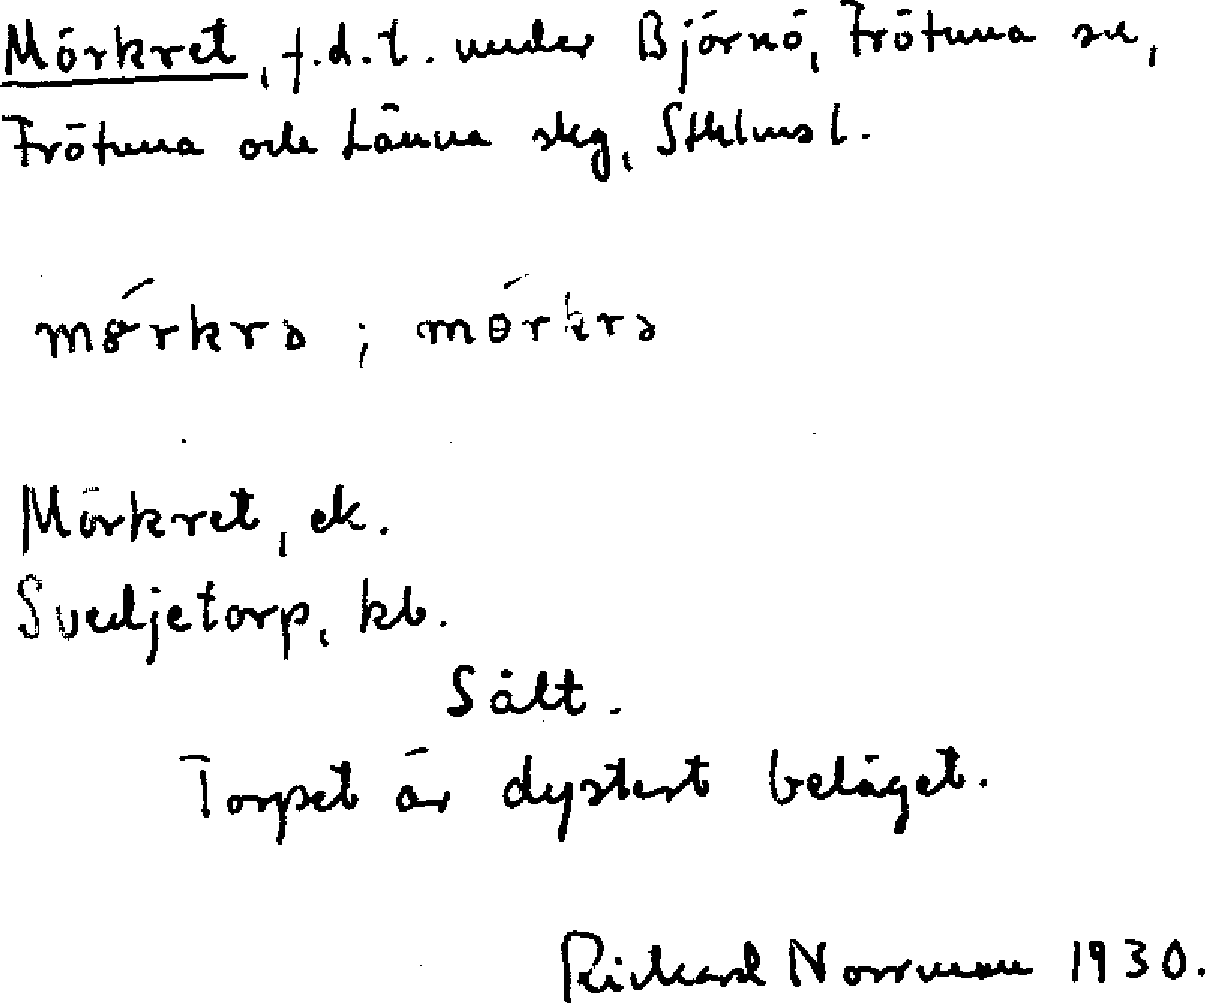 Mörkret, f.d.t. under Björnö, Frötuna sn,
Frötuna och Länna skg, Sthlms l.
mörkrə ; mörkrə
Mörkret, ek.
Svedjetorp, kb.
Sålt.
Torpet är dystert beläget.
Rickard Norrman 1930.